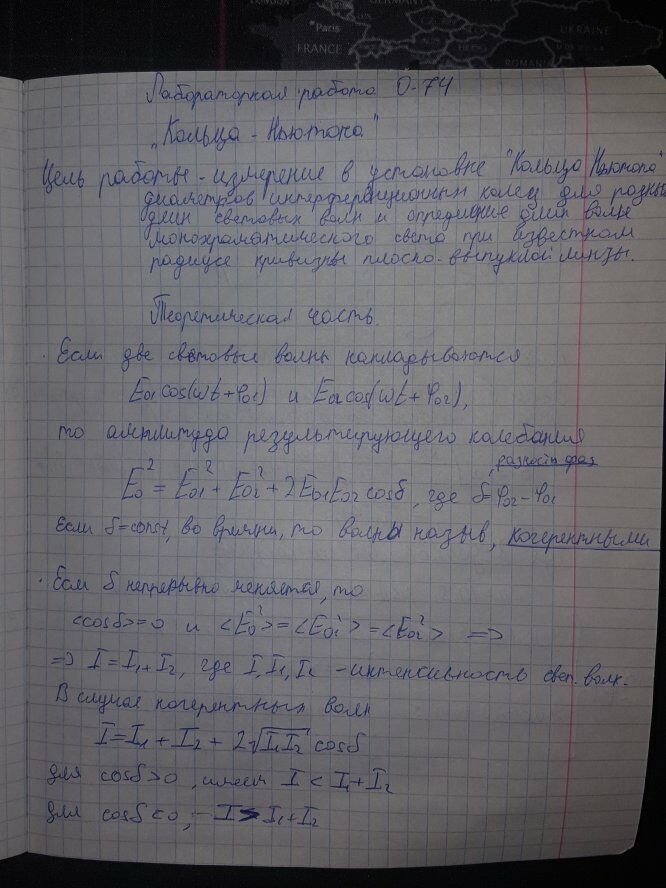 FRANCE
Paris
GERMANY
UKRAINE
ROMANIA
Лабораторная работа О-74
"Кольца-Ньютона"
Цель работы - измерение в установке "Кольца Ньютона"
диаметров интерференционных колец для разных
длин световых волн и определние длин волн
монохраматического света при известном
радиусе кривизны плоско-выпуклой линзы.
Теоретическая часть.
· Если две световые волны накладываются
E₀₁cos(ωt+φ₀₁) и E₀₂cos(ωt+φ₀₂),
то амплитуда результирующего колебания
разность фаз
E₀² = E₀₁² + E₀₂² + 2E₀₁E₀₂ cosδ, где δ=φ₀₂-φ₀₁
Если δ=const, во времени, то волны назыв, когерентными
· Если δ непрерывно меняется, то
<cosδ>=0 и <E₀²>=<E₀₁²>=<E₀₂²> =>
=> I=I₁+I₂, где I, I₁, I₂ - интенсивность свет. волн.
В случае когерентных волн
I=I₁+I₂+2√I₁I₂ cosδ
для cosδ>0, имеем I<I₁+I₂
для cosδ<0, - I>I₁+I₂